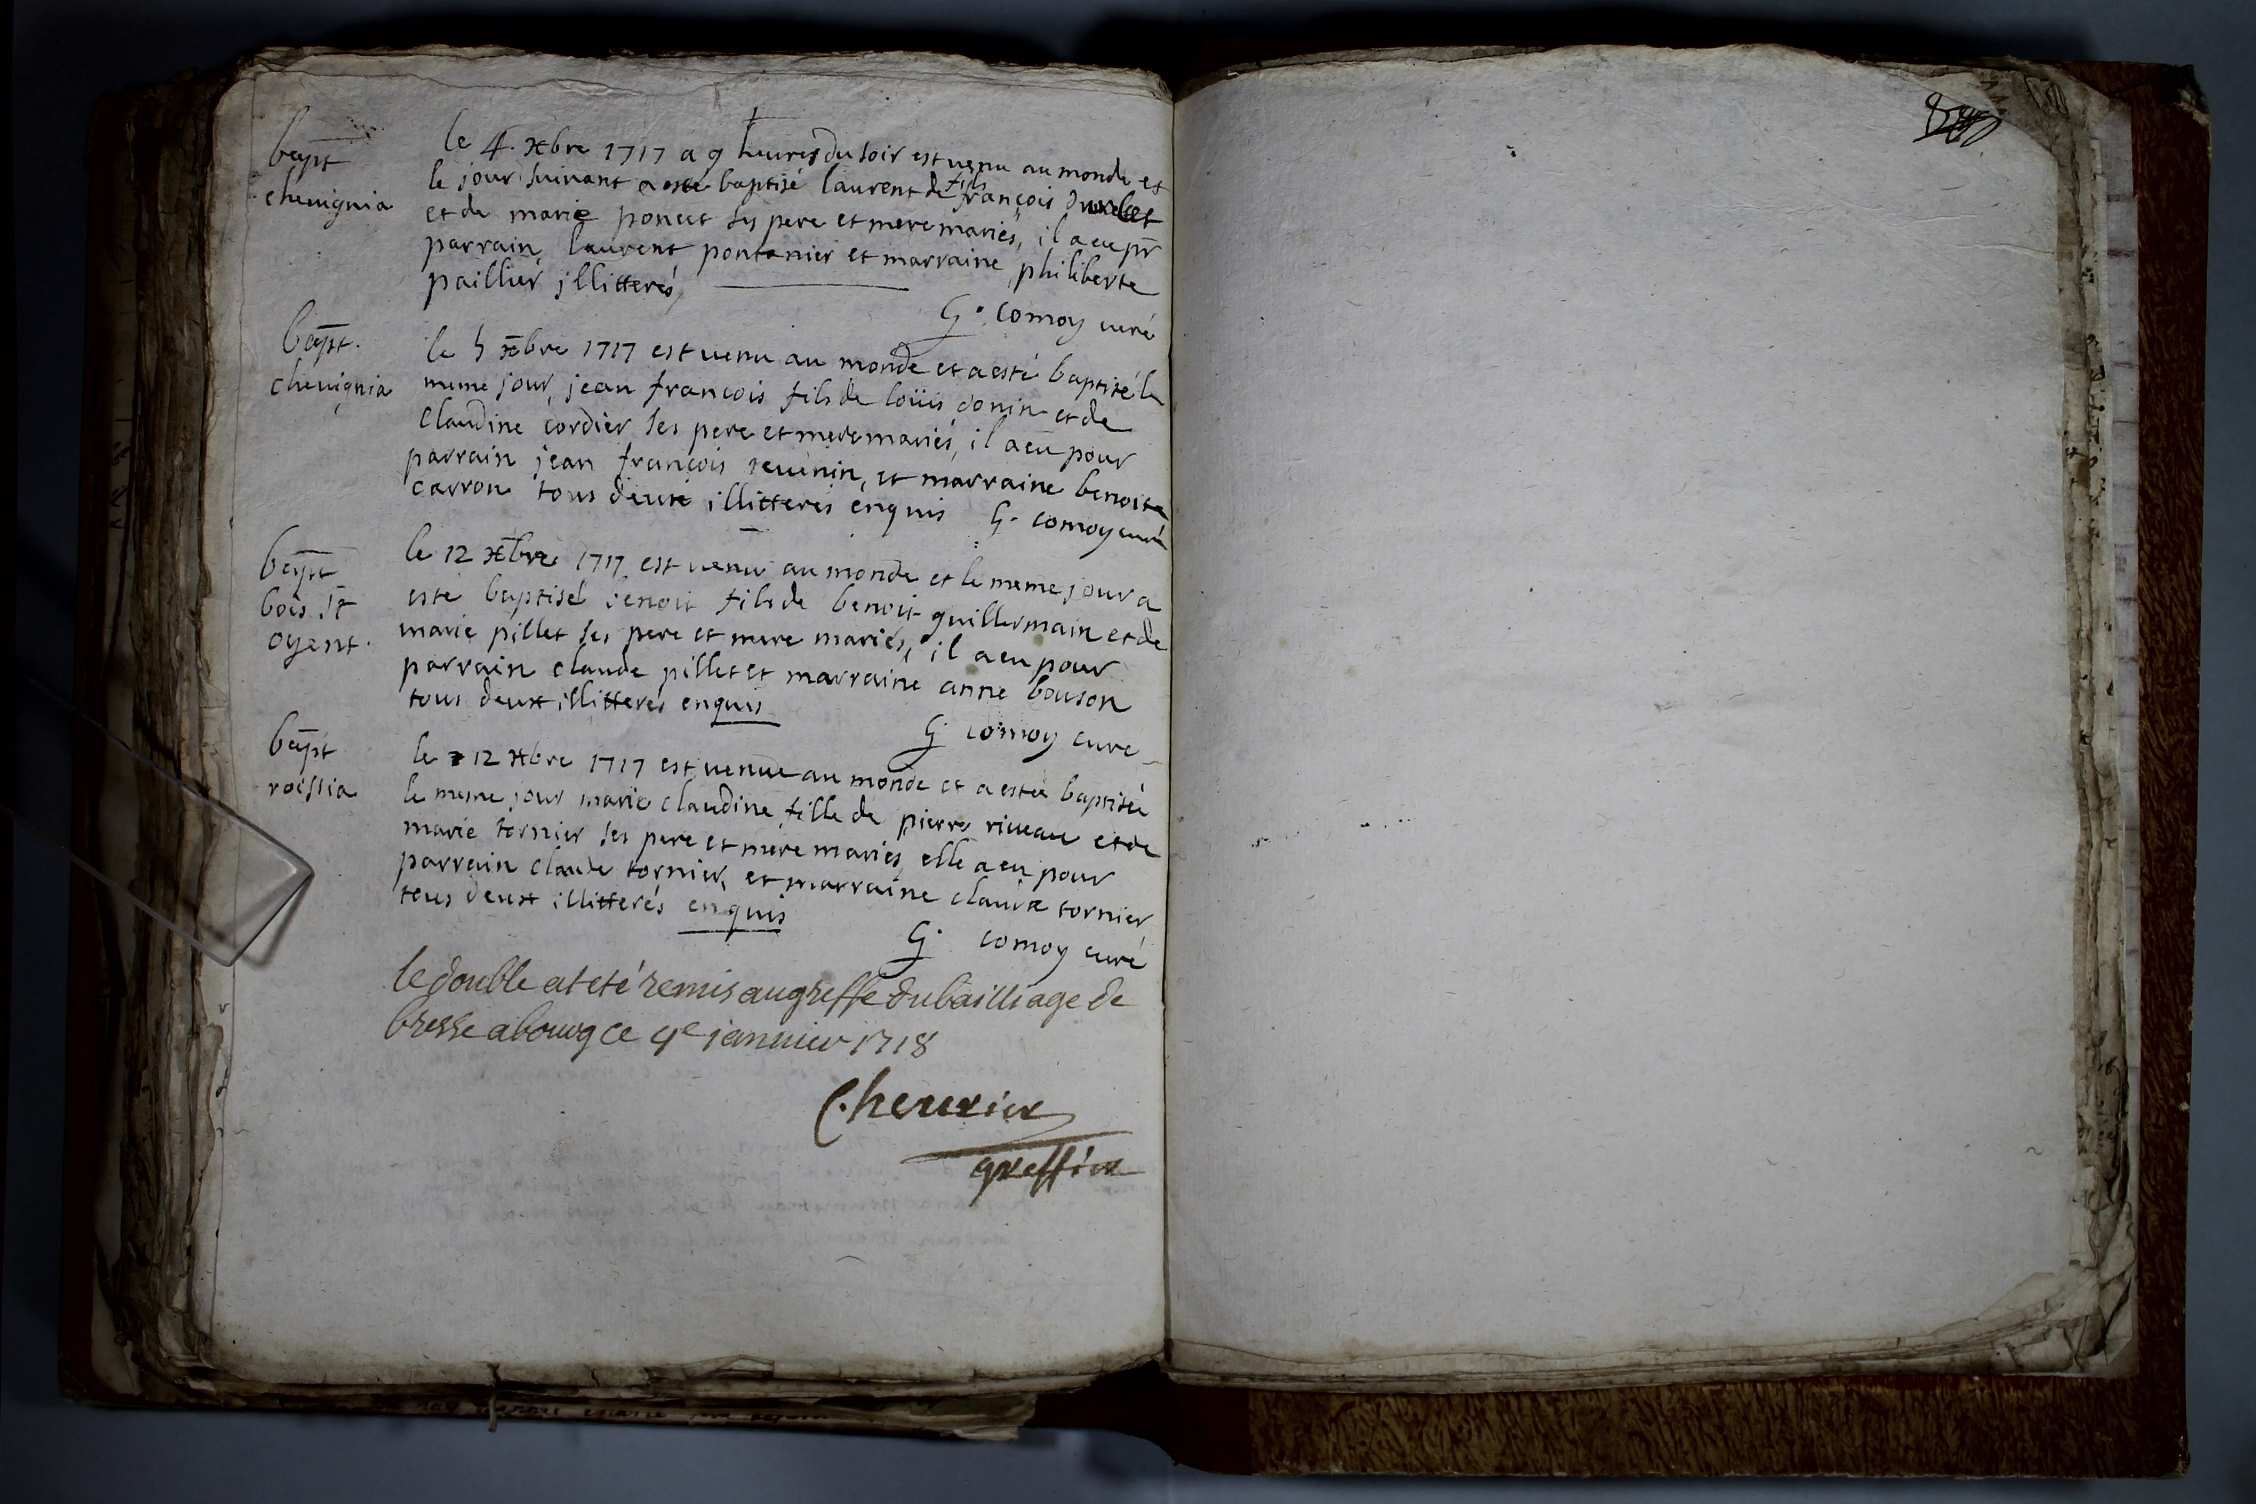 bapt
chevignia
le 4. xbre 1717 a 9 heures du soir est venu au monde et
le jour suivant a esté baptisé laurent fils de françois
et de marie poncet ses pere et mere mariés, il a eu pr
parrain laurent pontanier et marraine philiberte
paillier illitterés
G. comoy curé
bapt.
chevignia
le 5 xbre 1717 est venu au monde et a esté baptisé le
meme jour, jean francois fils de loüis donin et de
claudine cordier ses pere et mere mariés, il a eu pour
parrain jean françois revenin, et marraine benoite
carron tous deux illitterés enquis G. comoy curé
bapt
bois st
oyent.
le 12 xbre 1717 est venu au monde et le meme jour a
esté baptisé benoit fils de benoit guillermain et de
marie pillet ses pere et mere mariés, il a eu pour
parrain claude pillet et marraine anne bouson
tous deux illitterés enquis
G comoy curé
bapt
roissia
le 12 xbre 1717 est venue au monde et a estée baptisée
le meme jour marie claudine fille de pierre riveau et de
marie tornier ses pere et mere mariés, elle a eu pour
parrain claude tornier, et marraine claudæ tornier
tous deux illitterés enquis
G. comoy curé
le double at eté remis au greffe du bailliage de
bresse a bourg ce 4e janvier 1718
Chevrier
greffier